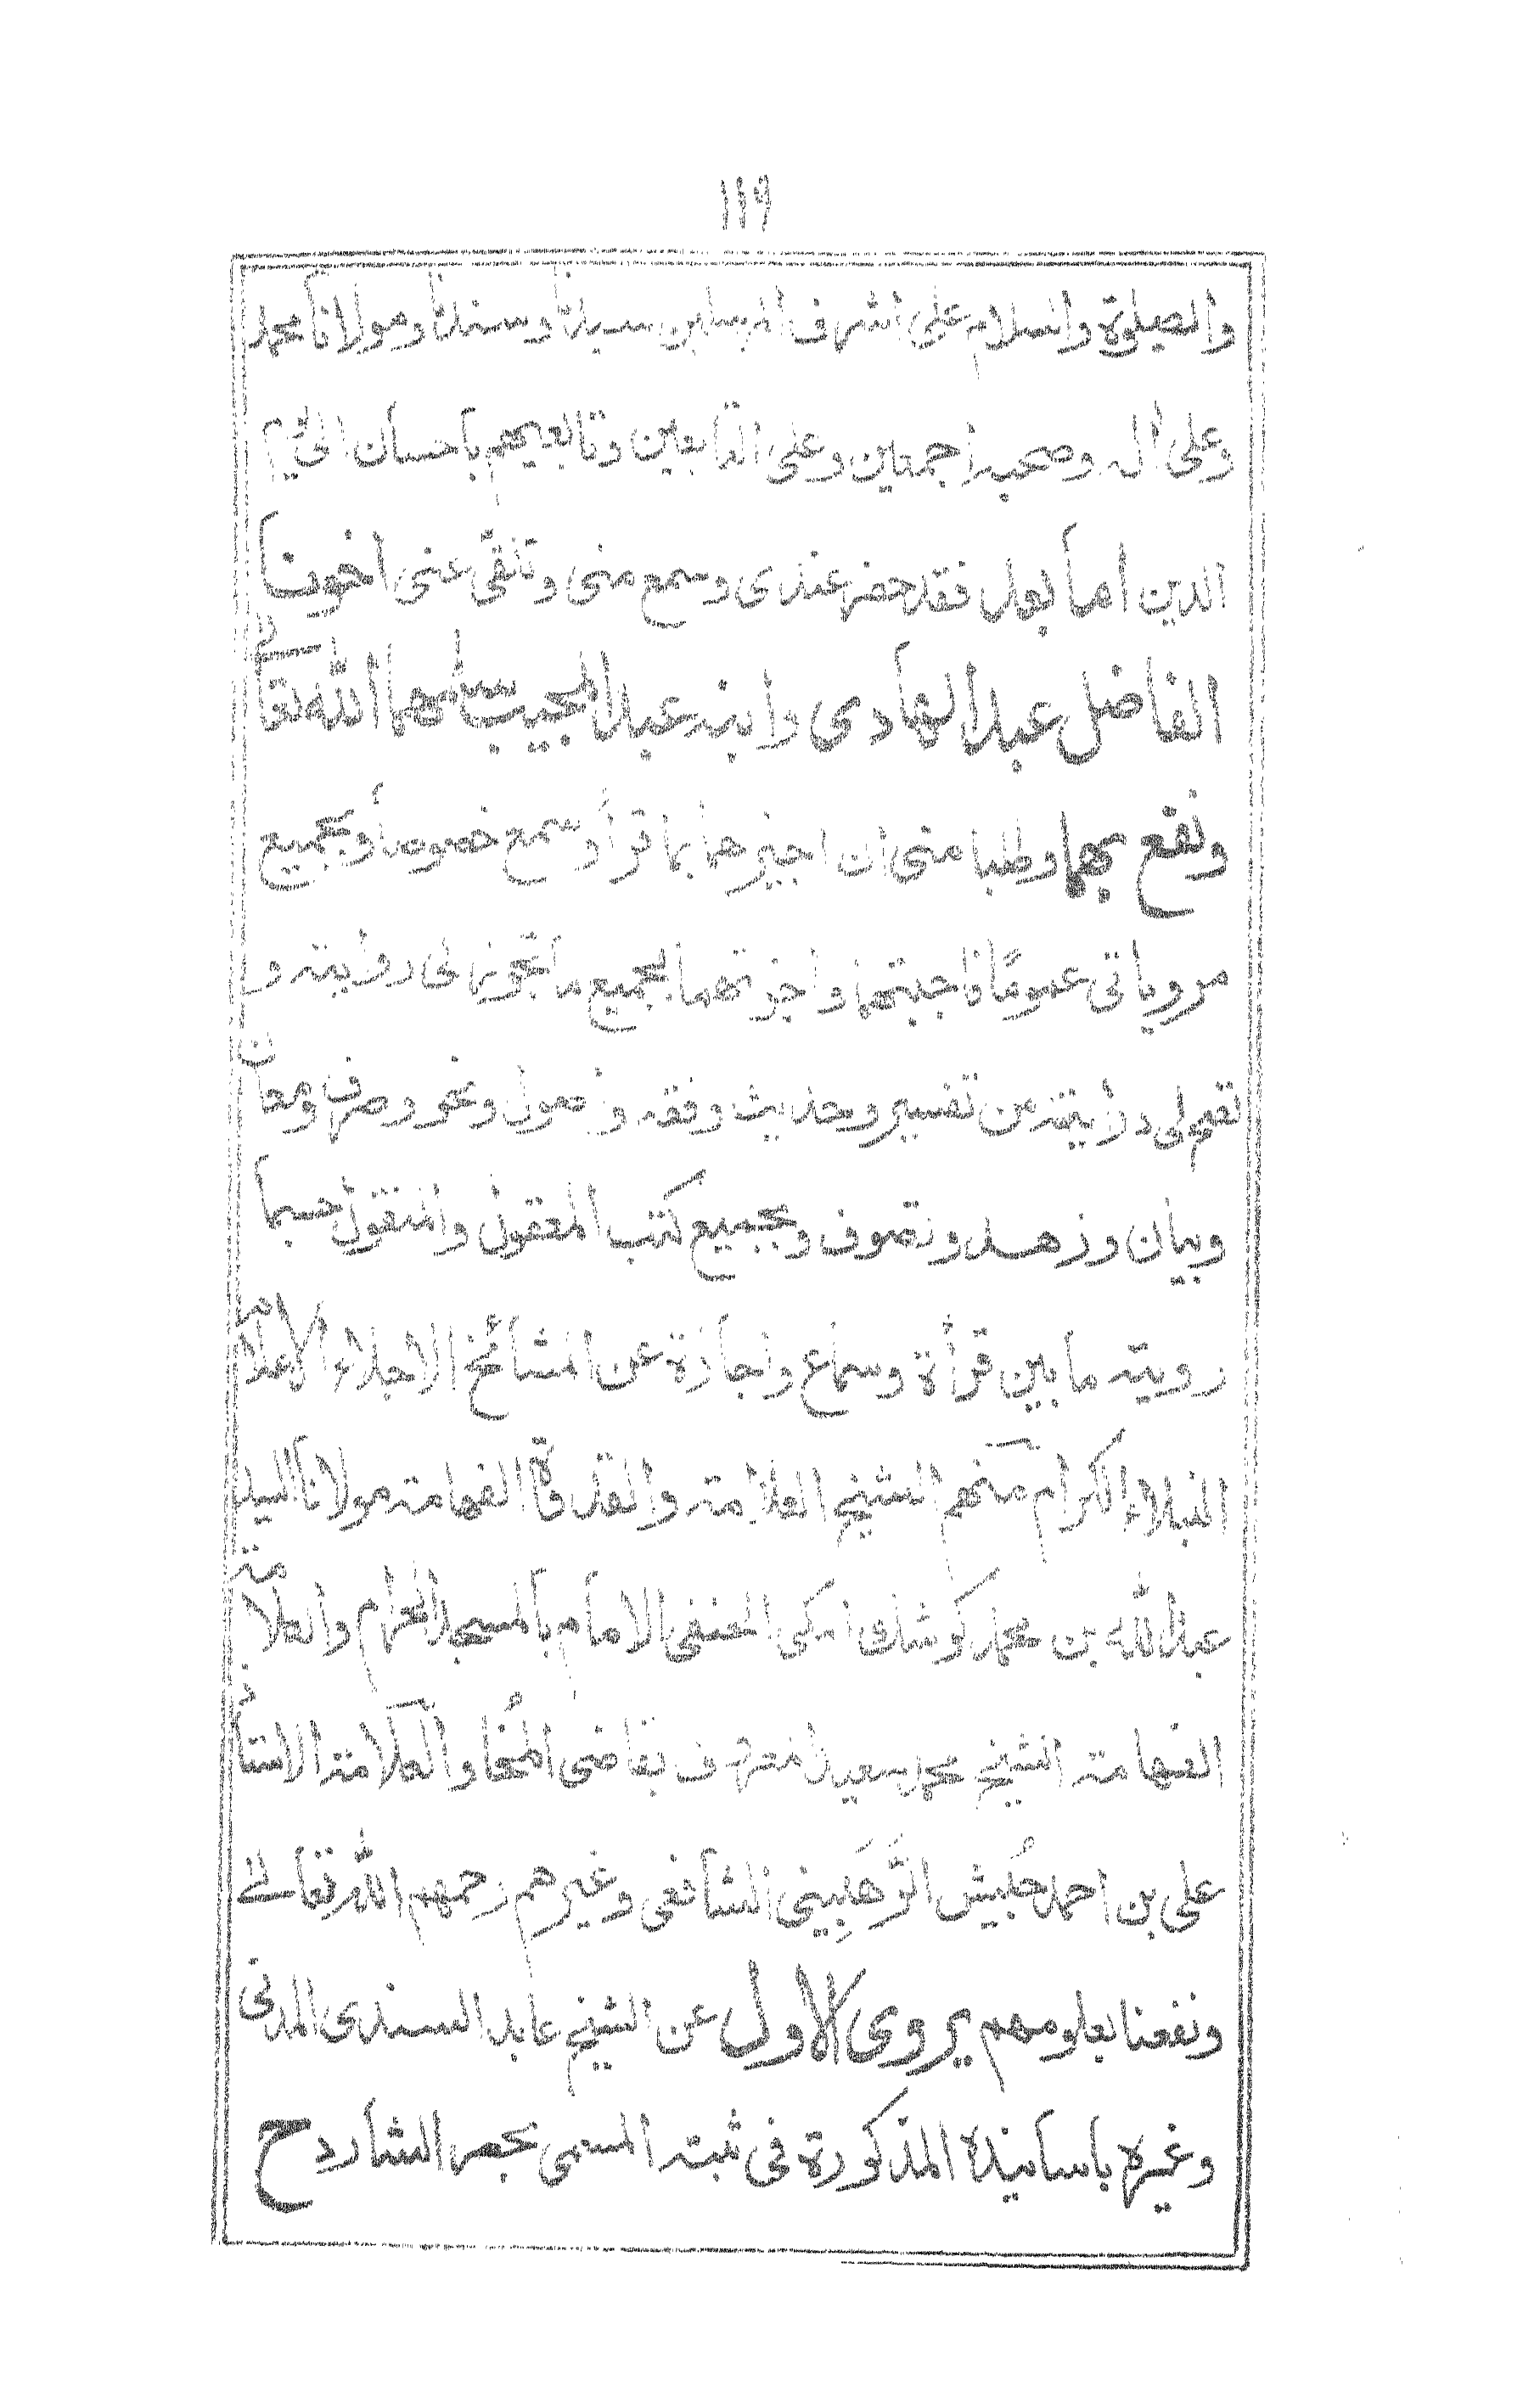 ١١٩
والصلوة والسلام على اشرف المرسلين سيدنا وسندنا ومولانا محمد
وعلى اله وصحبه اجمعين وعلى التابعين وتابعيهم باحسان الى يوم
الدين اما بعد فقد حضر عندى وسمع منى وتلقى عنى اخونا
الفاضل عبد الهادى وابنه عبد المجيب سلمهما الله تعالى
ونفع بهما وطلبا منى ان اجيزهما بما قرأ وسمع خصوصا وبجميع
مروياتى عموما فاجبتهما واجزتهما بجميع ما تجوز لى روايته و
تصح لى درايته من تفسير وحديث وفقه واصول ونحو وصرف ومعان
وبيان وزهد وتصوف وبجميع كتب المعقول والمنقول حسبما
رويته ما بين قرأة وسماع واجازة عن المشائخ الاجلاء الاعلام
النبلاء الكرام منهم الشيخ العلامة والقدوة الفهامة مولانا السيد
عبد الله بن محمد كوشك المكى الحنفى الامام بالمسجد الحرام والعلامة
الفهامة الشيخ محمد سعيد المعروف بقاضى المُخا والعلامة الاستاذ
على بن احمد حُبيش الرَّهَبِينى الشافعى وغيرهم رحمهم الله تعالى
ونفعنا بعلومهم يروى الاول عن الشيخ عابد السندى المدنى
وغيره باسانيده المذكورة فى ثبته المسمى بحصر الشارد ح